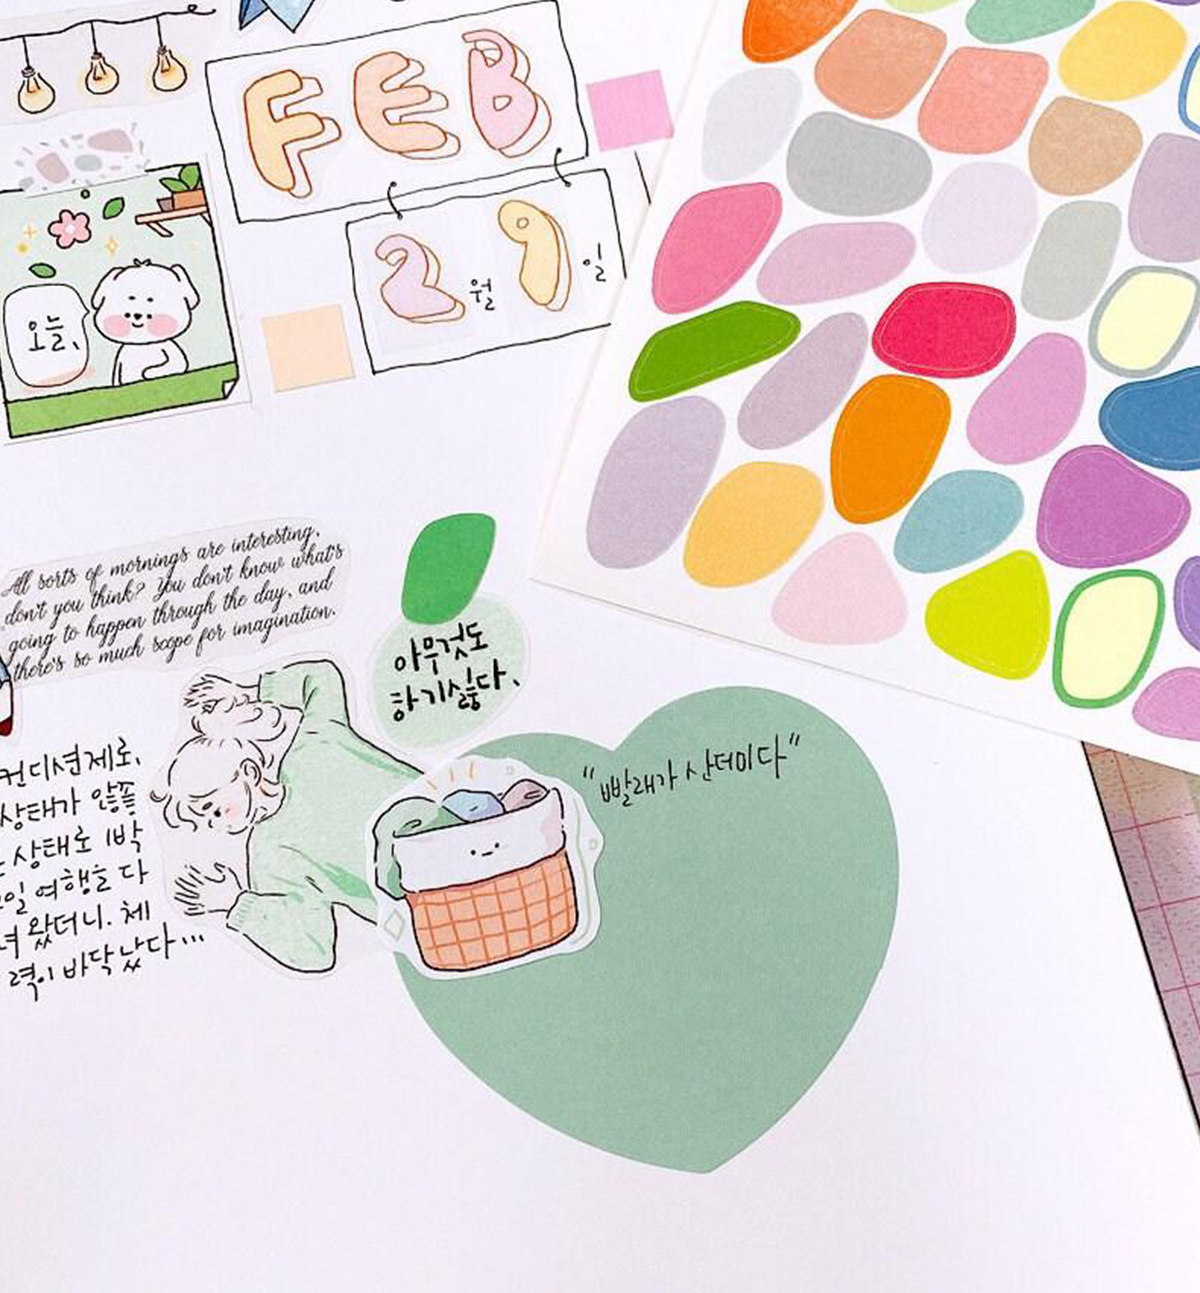 FEB
2월 9일
오늘,
All sorts of mornings are interesting,
don't you think? You don't know what's
going to happen through the day, and
there's so much scope for imagination.
아무것도
하기싫다.
"빨래가 산더미다"
컨디션제로,
상태가 않좋
는 상태로 1박
2일 여행을 다
녀 왔더니. 체
력이 바닥 났다...